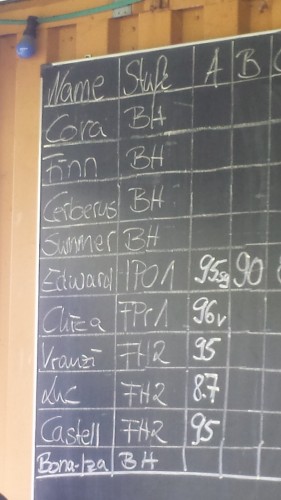 Name Stufe A B
Cora BH
Finn BH
Cerberus BH
Summer BH
Edward IPO1 95sg 90
Chiza FPr1 96v
Vranzi FH2 95
Luc FH2 87
Castell FH2 95
Bona-Iza BH